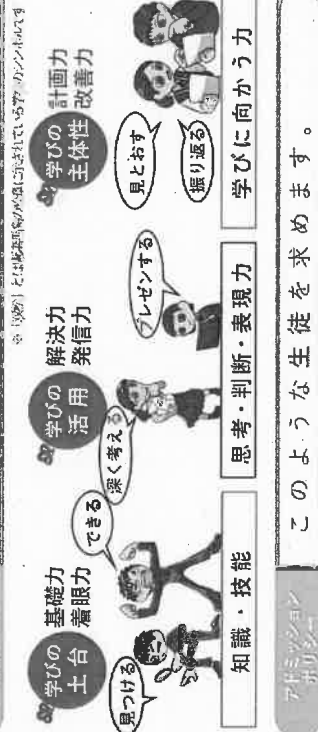 学びの
土台
基礎力
着眼力
見つける
できる
知識・技能
学びの
活用
解決力
発信力
深く考える
プレゼンする
思考・判断・表現力
学びの
主体性
計画力
改善力
見とおす
振り返る
学びに向かう力
アドミッション
ポリシー
このような生徒を求めます。